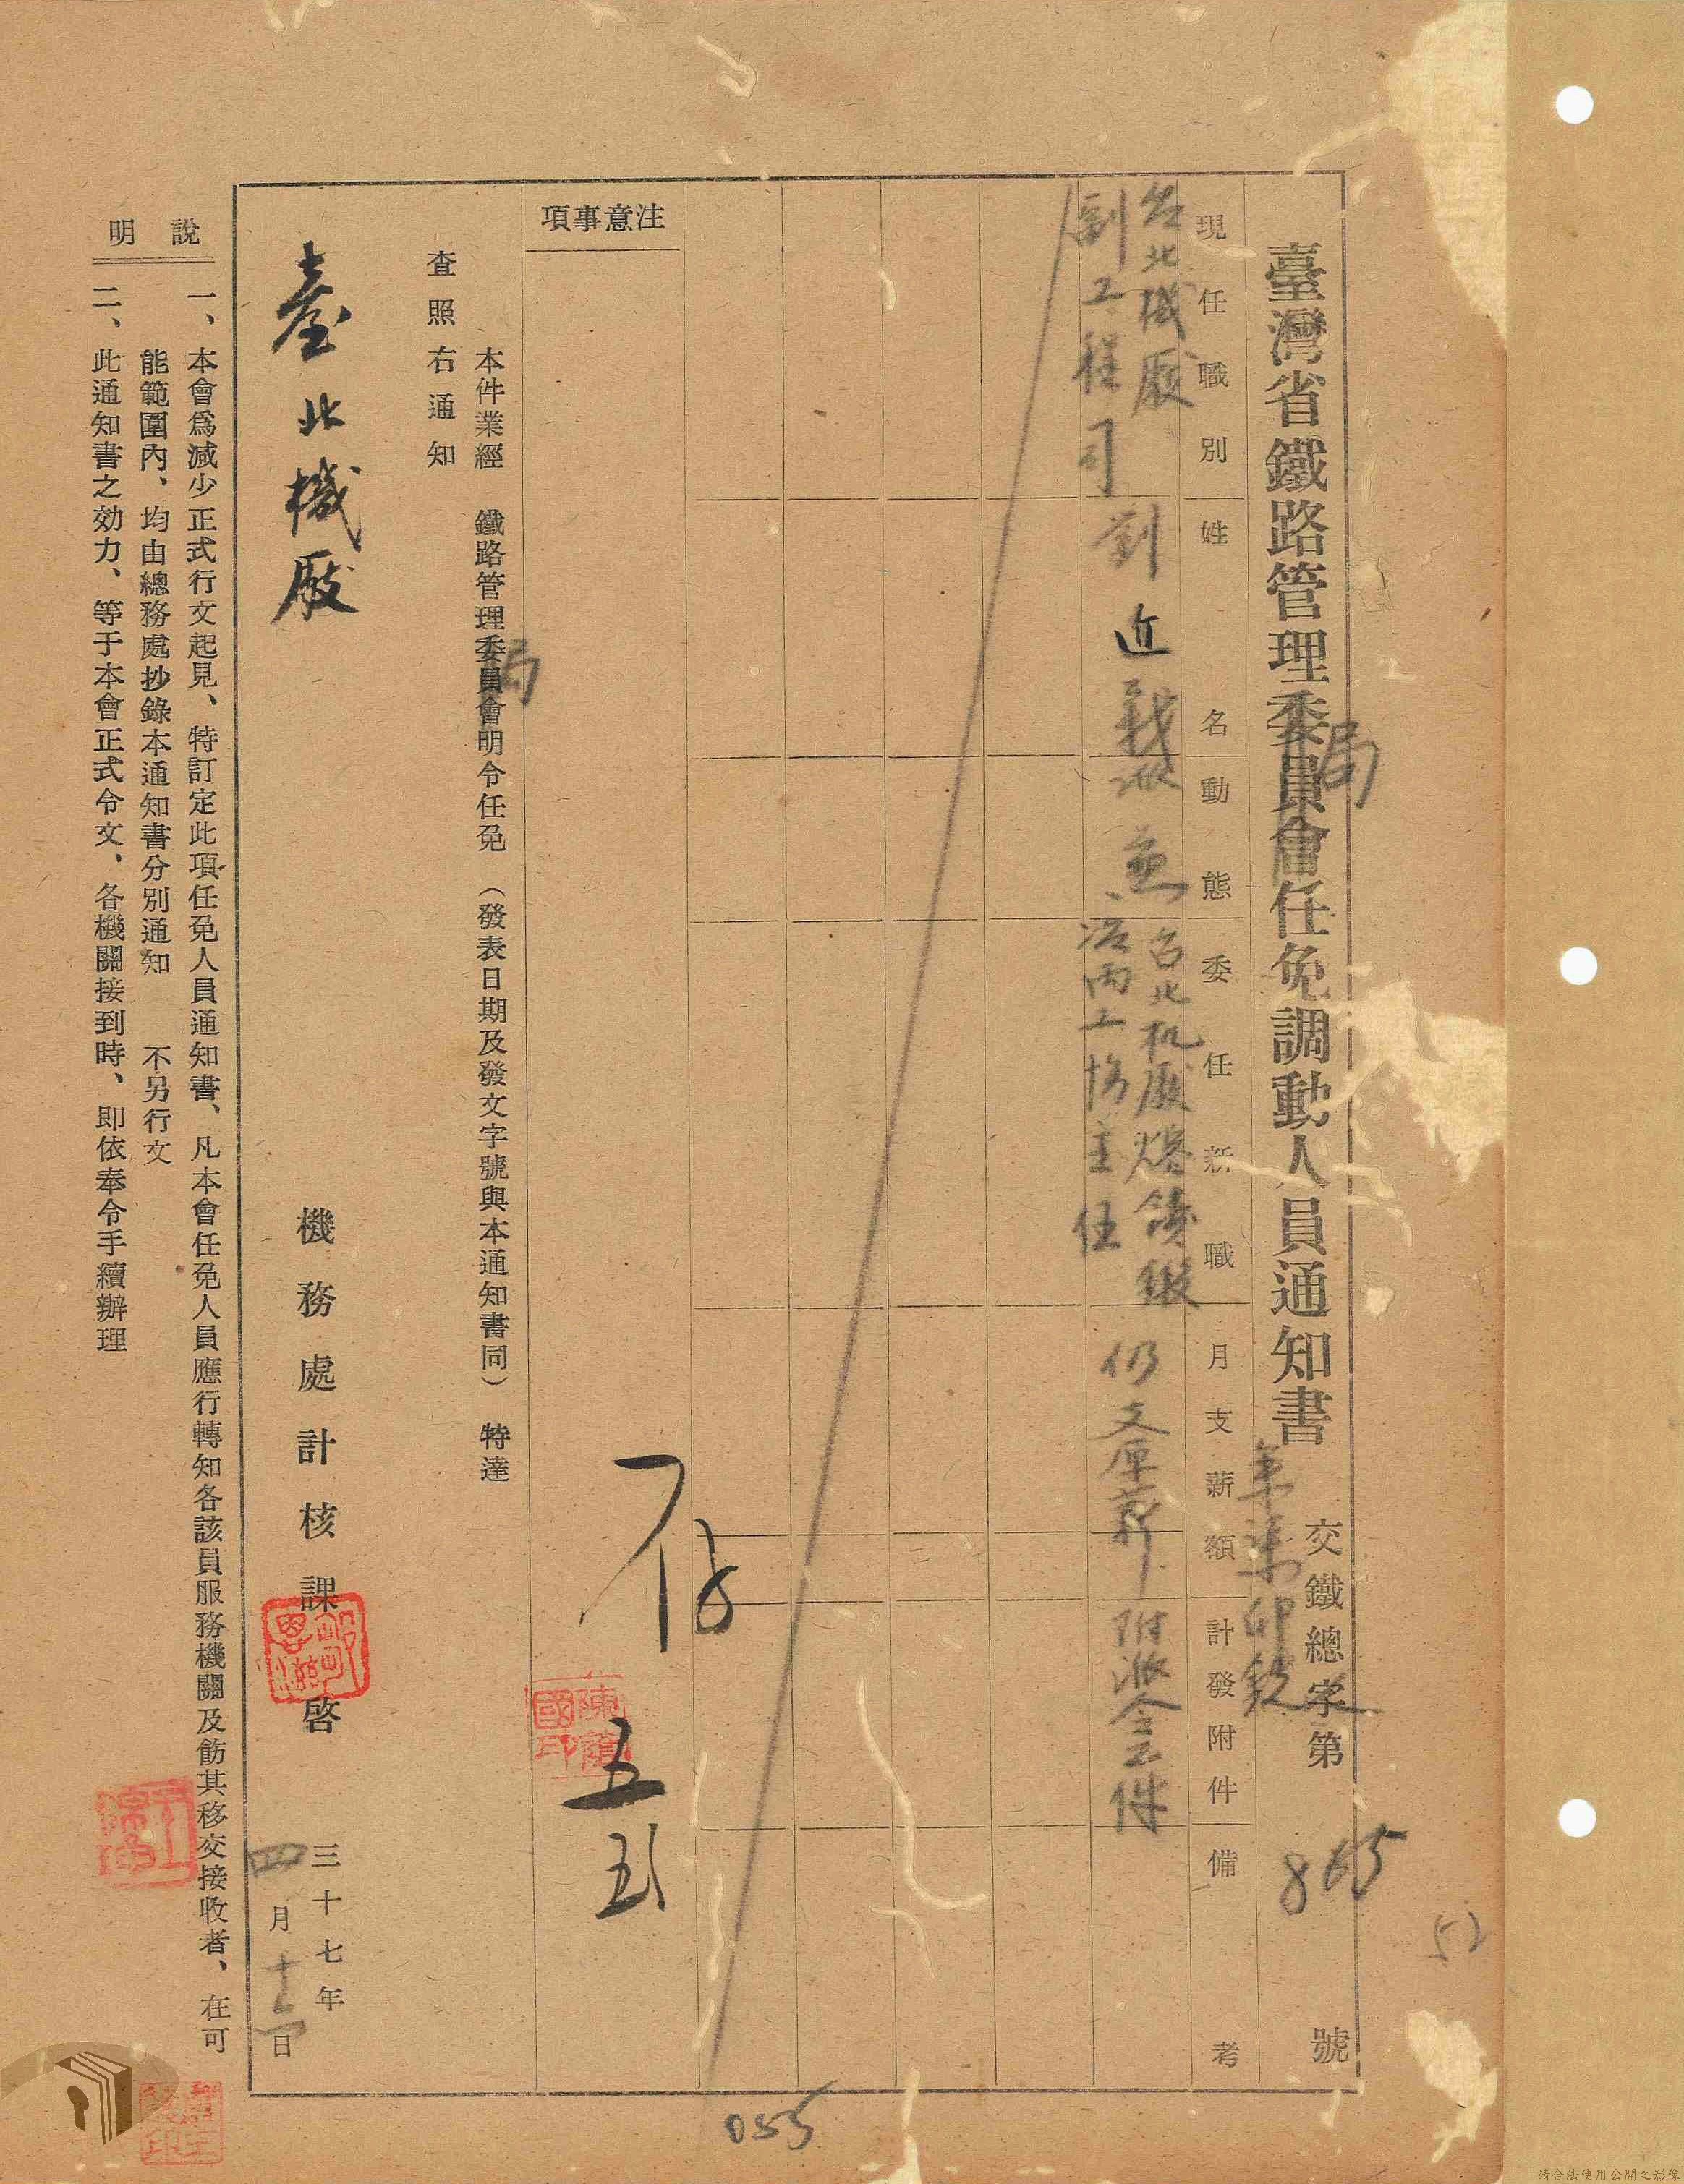 臺灣省鐵路管理委員會任免調動人員通知書
局
交鐵總字第 865 號
現任職別
姓名
動態
委任新職
月支薪額
計發附件
備考
台北機厰
副工程司
劉近
派兼
台北机厰熔鑄鍛
主任
仍支原薪
附派令乙件
注意事項
存
五
本件業經 鐵路管理委員會明令任免 (發表日期及發文字號與本通知書同) 特達
局
查照右通知
臺北機厰
機務處計核課 啓
三十七年
四月十 日
說明
一、本會爲減少正式行文起見、特訂定此項任免人員通知書、凡本會任免人員應行轉知各該員服務機關及飭其移交接收者、在可
能範圍內、均由總務處抄錄本通知書分別通知 不另行文
二、此通知書之効力、等于本會正式令文、各機關接到時、即依奉令手續辦理
陳蔭國印
055
52
請合法使用公開之影像